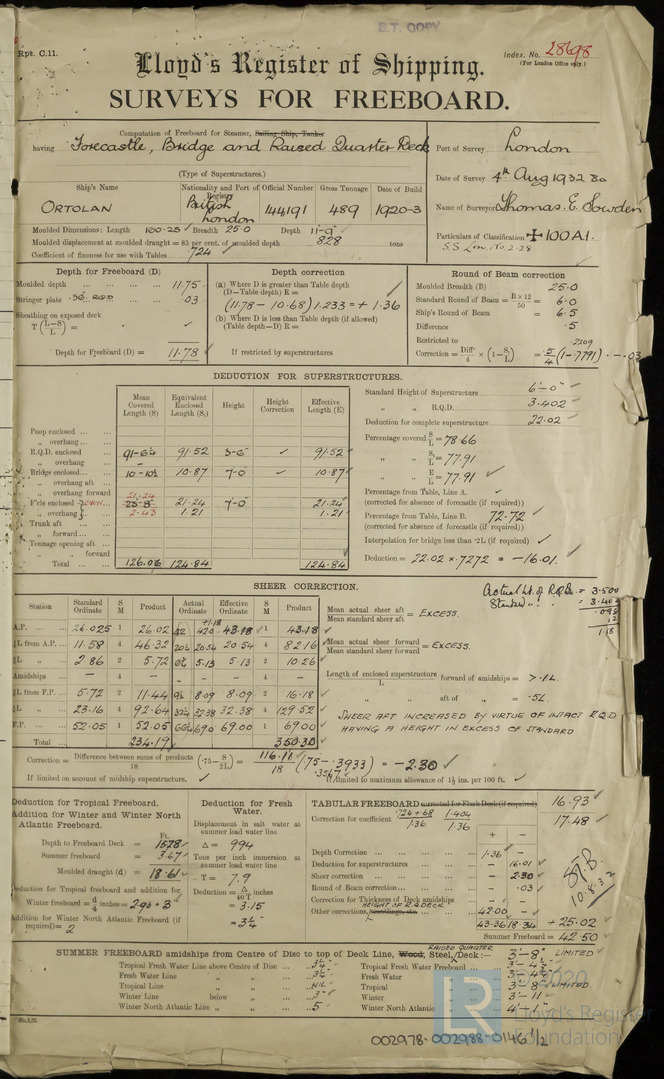 B.T. COPY
Rpt. C.11.
Index. No. 28698
(For London Office only.)
Lloyd's Register of Shipping.
SURVEYS FOR FREEBOARD.
Computation of Freeboard for Steamer, Sailing Ship, Tanker
having Forecastle, Bridge and Raised Quarter Deck
(Type of Superstructures.)
Port of Survey London
Date of Survey 4th Aug 1932
Name of Surveyor Thomas E. Sowden
Particulars of Classification +100A1.
S.S. Lon. No. 2-28
Ship's Name
Nationality and Port of Registry
Official Number
Gross Tonnage
Date of Build
ORTOLAN
British London
144191
489
1920-3
Moulded Dimensions: Length 160.25 Breadth 25.0 Depth 11'-9"
Moulded displacement at moulded draught = 85 per cent. of moulded depth 828 tons
Coefficient of fineness for use with Tables .724
Depth for Freeboard (D)
Moulded depth 11.75
Stringer plate .03
Sheathing on exposed deck
T (L-S/L) =
Depth for Freeboard (D) = 11.78
Depth correction
(a) Where D is greater than Table depth
(D—Table depth) R =
(11.78 - 10.68) 1.233 = + 1.36
(b) Where D is less than Table depth (if allowed)
(Table depth—D) R =
If restricted by superstructures
Round of Beam correction
Moulded Breadth (B) 25.0
Standard Round of Beam = B×12/50 = 6.0
Ship's Round of Beam = 6.5
Difference .5
Restricted to
Correction = Diff/4 × (1-S₁/L) = .5/4 (1-.7791) = -.03
.2209
DEDUCTION FOR SUPERSTRUCTURES.
Mean Covered Length (S)
Equivalent Enclosed Length (S₁)
Height
Height Correction
Effective Length (E)
Poop enclosed
„ overhang
R.Q.D. enclosed 91-6¼ 91.52 3-6 91.52
„ overhang
Bridge enclosed 10-10½ 10.87 7-0 10.87
„ overhang aft
„ overhang forward
F'cle enclosed 21.24 21.24 7-0 21.24
„ overhang 2.43 1.21 1.21
Trunk aft
„ forward
Tonnage opening aft
„ „ forward
Total 126.06 124.84 124.84
Standard Height of Superstructure 6'-0"
„ „ R.Q.D. 3.402
Deduction for complete superstructure 22.02
Percentage covered S/L = 78.66
„ „ S₁/L = 77.91
„ „ E/L = 77.91
Percentage from Table, Line A.
(corrected for absence of forecastle (if required))
Percentage from Table, Line B. 72.72
(corrected for absence of forecastle (if required))
Interpolation for bridge less than ·2L (if required)
Deduction = 22.02 × .7272 = -16.01.
SHEER CORRECTION.
Station
Standard Ordinate
S M
Product
Actual Ordinate
Effective Ordinate
S M
Product
+1.18
A.P. 26.025 1 26.02 42 42.0 43.18 1 43.18
⅙L from A.P. 11.58 4 46.32 20½ 20.54 20.54 4 82.16
⅓L „ 2.86 2 5.72 5.13 5.13 2 10.26
Amidships - 4 - - - - 4 -
⅓L from F.P. 5.72 2 11.44 8.09 8.09 2 16.18
⅙L „ 23.16 4 92.64 32.38 32.38 4 129.52
F.P. 52.05 1 52.05 69.0 69.00 1 69.00
Total 234.19 350.30
Actual ht. of R.Q.D. = 3.500
Standard = 3.402
.098
12
1.18
Mean actual sheer aft / Mean standard sheer aft = EXCESS.
Mean actual sheer forward / Mean standard sheer forward = EXCESS.
Length of enclosed superstructure / L forward of amidships = >.1L.
„ „ aft of „ = .5L
SHEER AFT INCREASED BY VIRTUE OF INTACT RQD
HAVING A HEIGHT IN EXCESS OF STANDARD
Correction = Difference between sums of products / 18 (·75-S/2L) = 116.11/18 (.75-.3933) = -2.30
.3567
If limited on account of midship superstructure.
If limited to maximum allowance of 1½ ins. per 100 ft.
Deduction for Tropical Freeboard.
Addition for Winter and Winter North Atlantic Freeboard.
Ft.
Depth to Freeboard Deck = 15.78
Summer freeboard = 3.67
Moulded draught (d) =
Deduction for Tropical freeboard and addition for
Winter freeboard = d/4 inches = 3
Addition for Winter North Atlantic Freeboard (if required) = 2
Deduction for Fresh Water.
Displacement in salt water at summer load water line
Δ = 994
Tons per inch immersion at summer load water line
T = 7.9
Deduction = Δ/40T inches
= 3.15
= 3¼
TABULAR FREEBOARD corrected for Flush Deck (if required) 16.93
Correction for coefficient .724 + .68 / 1.36 1.404 / 1.36 17.48
+ -
Depth Correction 1.36 -
Deduction for superstructures - 16.01
Sheer correction - 2.30
Round of Beam correction - .03
Correction for Thickness of Deck amidships - -
Other corrections, HEIGHT OF R.Q.DECK 42.00 -
43.36 18.34 + 25.02
Summer Freeboard = 42.50
10.8.32
SUMMER FREEBOARD amidships from Centre of Disc to top of Deck Line, Wood, Steel, RAISED QUARTER Deck:— 3'-8" LIMITED
Tropical Fresh Water Line above Centre of Disc 3¼"
Fresh Water Line „ „ 3¼"
Tropical Line „ „ NIL
Winter Line below „ 3"
Winter North Atlantic Line „ „ 5"
Tropical Fresh Water Freeboard
Fresh Water „
Tropical „ 3'-8" LIMITED.
Winter „ 3'-11"
Winter North Atlantic „ 4'-1"
© 2020
LR
Lloyd's Register
Foundation
002978-002988-0146 1/2